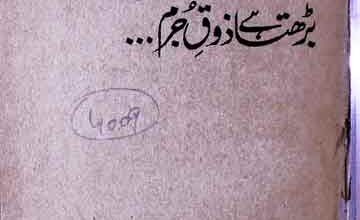 بڑھتا ہے ذوقِ جُرم ...